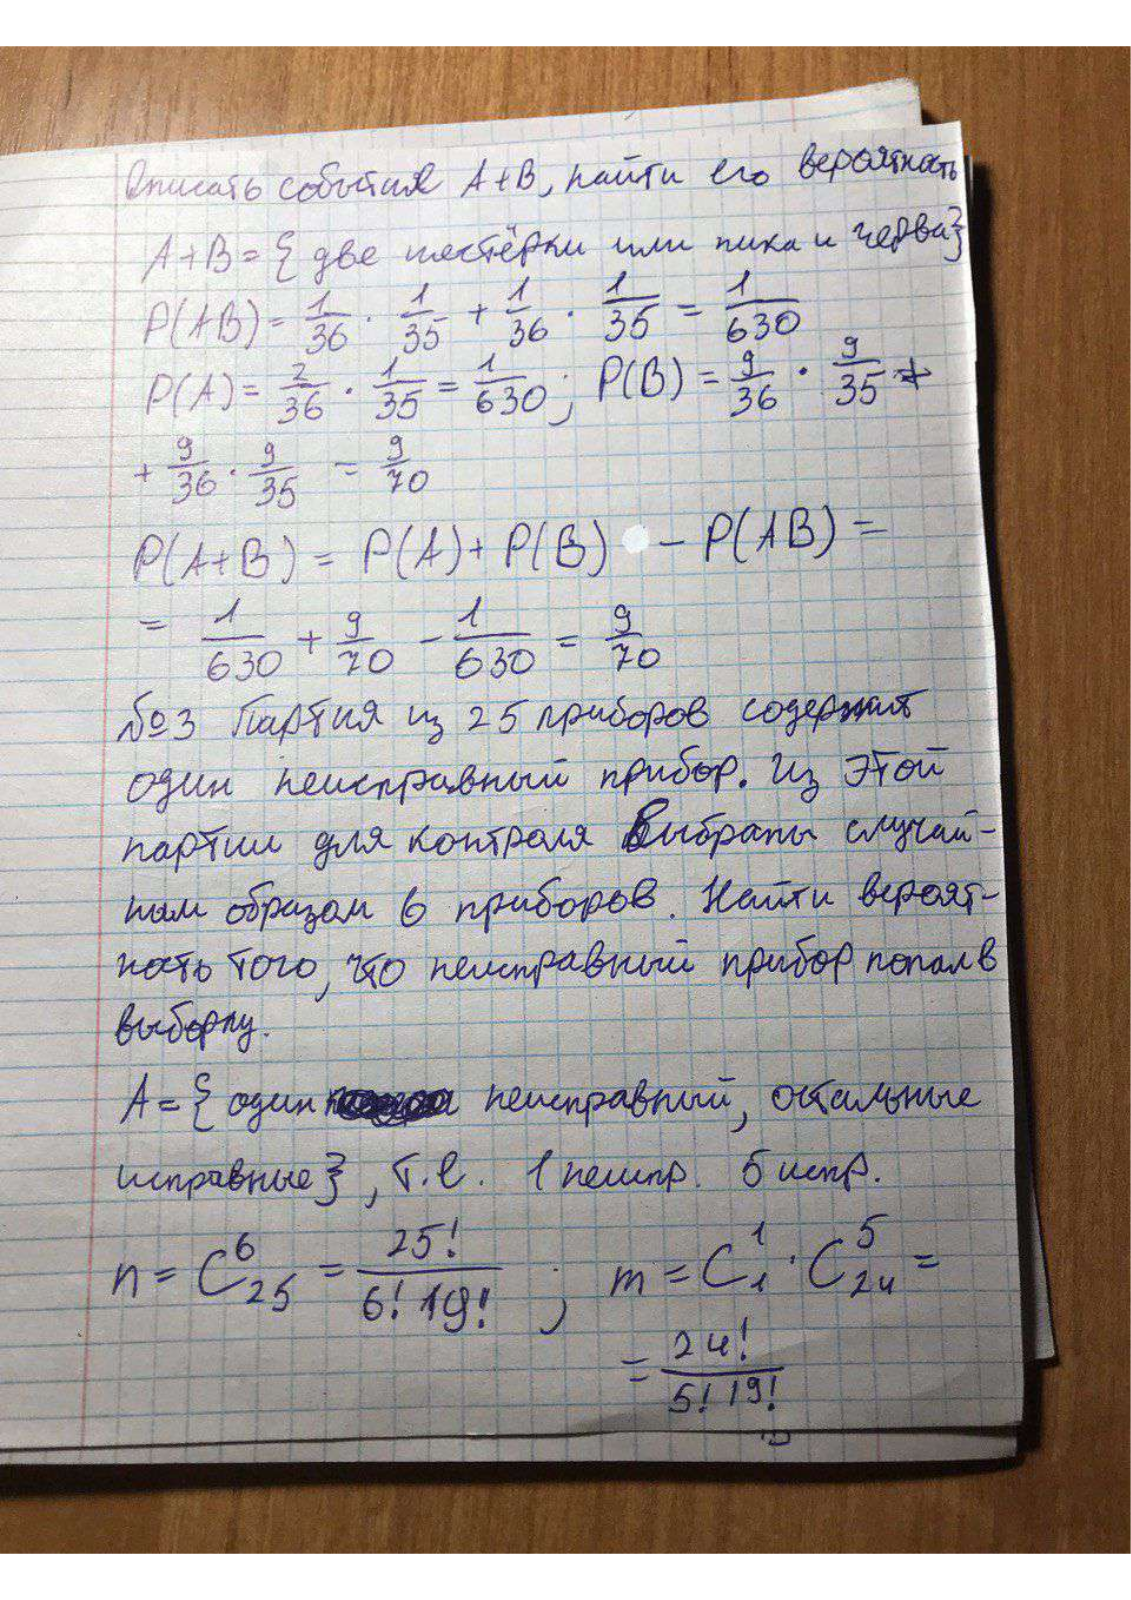 Описать событие A+B, найти его вероятность
A+B = { две шестёрки или пика и черва}
P(AB) = 1/36 · 1/35 + 1/36 · 1/35 = 1/630
P(A) = 2/36 · 1/35 = 1/630 ; P(B) = 9/36 · 9/35 +
+ 9/36 · 9/35 = 9/70
P(A+B) = P(A) + P(B) - P(AB) =
= 1/630 + 9/70 - 1/630 = 9/70
№3 Партия из 25 приборов содержит
один неисправный прибор. Из этой
партии для контроля выбраны случай-
ным образом 6 приборов. Найти вероят-
ность того, что неисправный прибор попал в
выборку.
A = { один неисправный, остальные
исправные}, т.е. 1 неиспр. 5 испр.
n = C₂₅⁶ = 25!/(6! 19!) ; m = C₁¹ · C₂₄⁵ =
= 24!/(5! 19!)